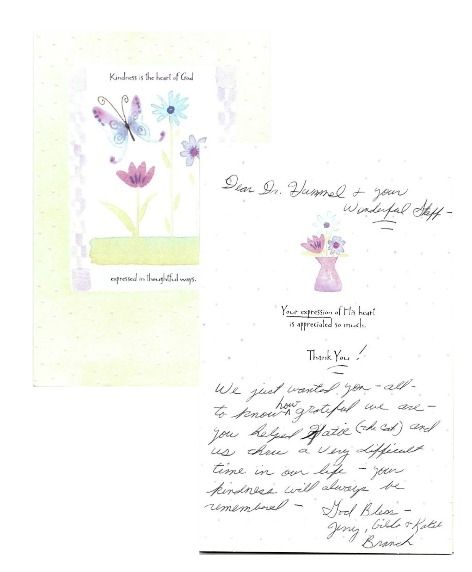 Kindness is the heart of God
expressed in thoughtful ways.
Dear Dr. Hummel + your
Wonderful Staff -
Your expression of His heart
is appreciated so much.
Thank You!
We just wanted you - all -
to know how grateful we are -
you helped Katie (the cat) and
us thru a very difficult
time in our life - your
kindness will always be
remembered - God Bless -
Jerry, Gilda + Katie
Branch